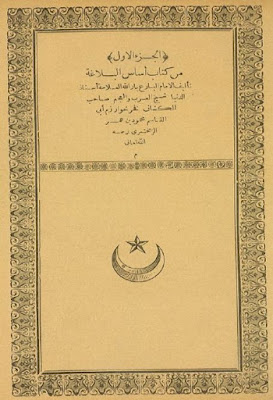 ﴿الجزء الاول﴾
من كتاب أساس البلاغة
تأليف الامام البارع جار الله العلامة أستاذ
الدنيا شيخ العرب والعجم صاحب
الكشاف فخر خوارزم أبي
القاسم محمود بن عمر
الزمخشري رحمه
الله تعالى
م